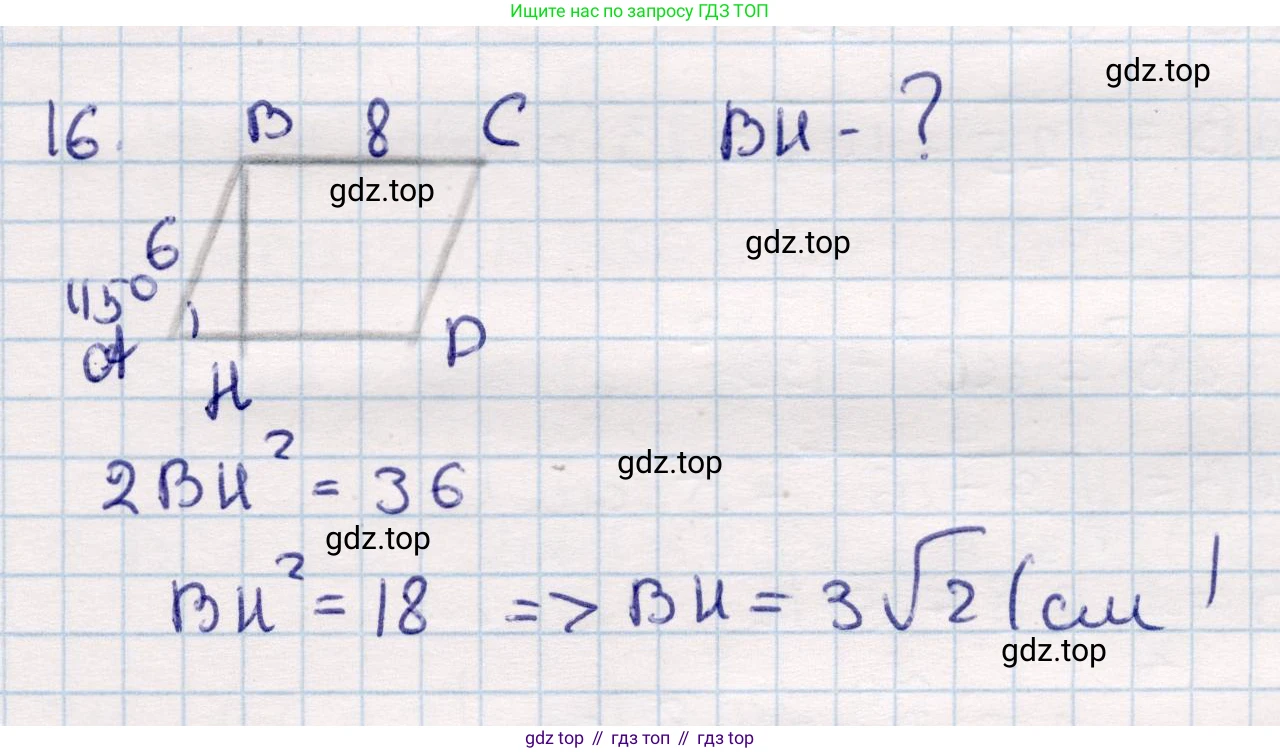 Ищите нас по запросу ГДЗ ТОП
gdz.top
16. B 8 C BH - ?
gdz.top
gdz.top
6
45°
A D
H
gdz.top
2BH² = 36
gdz.top
BH² = 18 => BH = 3√2 (см)
gdz.top
gdz top // гдз топ // гдз top